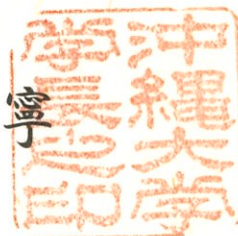 沖縄大学
学長之印
寧